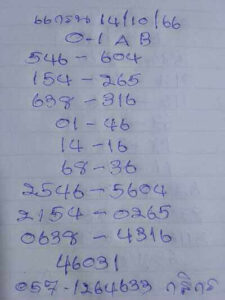 ๖๖กรน 14/10/66
0-1 A B
546 - 604
154 - 265
638 - 316
01 - 46
14 - 16
68 - 36
2546 - 5604
2154 - 0265
0638 - 4316
46031
057-1264633 กสิกร